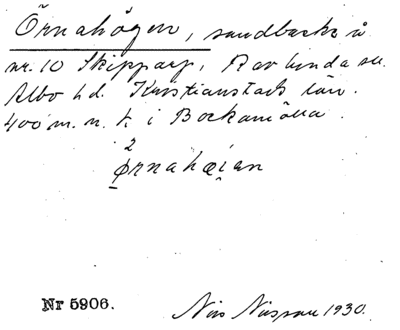 Örnahögen, sandbacke å
nr. 10 Skipparp, Ravlunda sn.
Albo hd. Kristianstads län.
400 m. n. k. i Bockamölla.
2
ørnahøian
Nr 5906.
Nils Nilsson 1930.